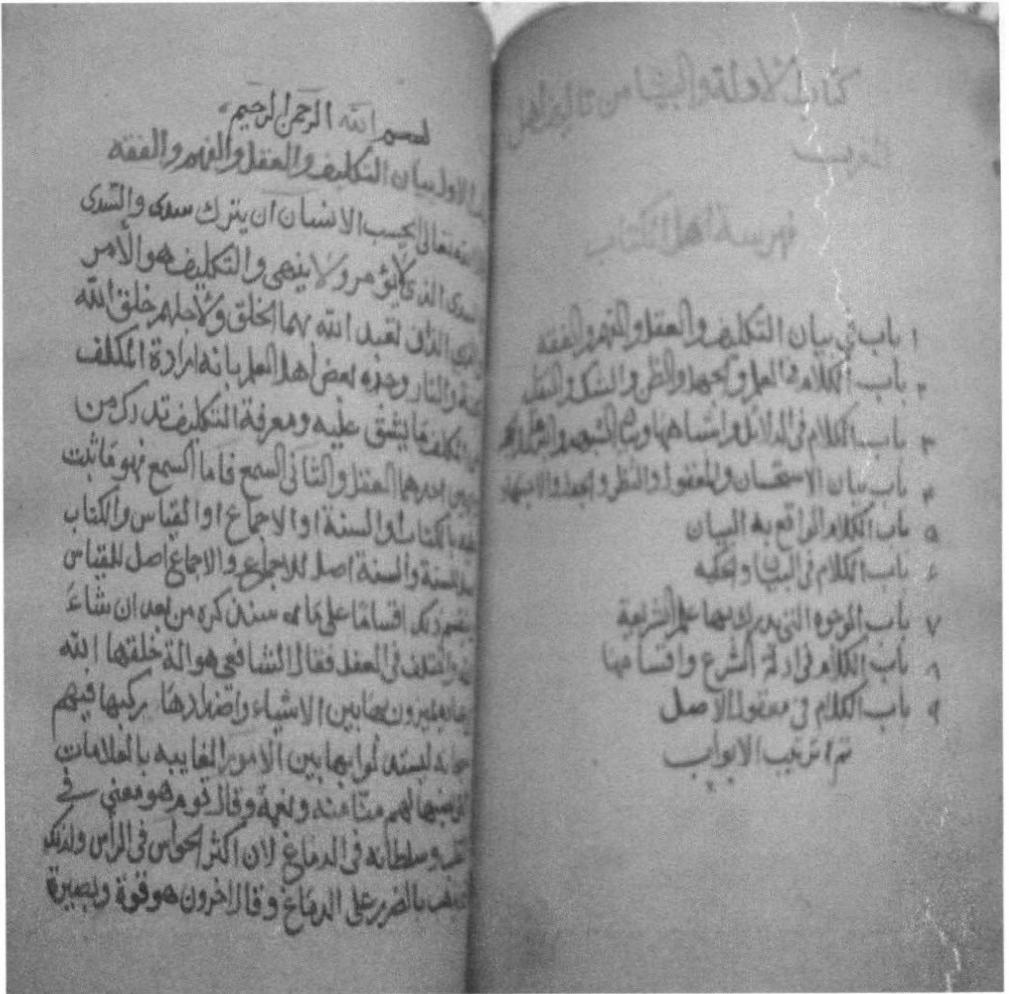 كتاب الأدلة والبيان من تاليف اهل
المغرب
فهرسة اهل الكتاب
١ باب في بيان التكليف والعقل والفهم والفقه
٢ باب الكلام في العلم والجهل والظن والشك والنقل
٣ باب الكلام في الدلائل واشباهها
٤ باب بيان الاستحسان والمعقول والنظر والجدل والاجتهاد
٥ باب الكلام الواقع به البيان
٦ باب الكلام في البيان والحكيه
٧ باب الوجوه التي يدرك بها علم الشريعة
٨ باب الكلام في ادلة الشرع واقسامها
٩ باب الكلام في معقول الاصل
تم ترتيب الابواب
بسم الله الرحمن الرحيم
الاول بيان التكليف والعقل والفهم والفقه
الله تعالى ايحسب الانسان ان يترك سدى والسدى
الذي لا يؤمر ولا ينهى والتكليف هو الأمر
تعبد الله بهما الخلق ولاجلهم خلق الله
والنار وحده بعض أهل العلم بانه ارادة المكلف
من المكلف ما يشق عليه ومعرفة التكليف تدرك من
احدهما العقل والثاني السمع فاما السمع فهو ما ثبت
بالكتاب او السنة او الاجماع او القياس والكتاب
للسنة والسنة اصل للاجماع والاجماع اصل للقياس
ذلك اقساما على ما سنذكره من بعد ان شاء
واختلف في العقل فقال الشافعي هو الة خلقها الله
لعباده يميزون بها بين الاشياء واضدادها ركبها فيهم
سبحانه ليستدلوا بها بين الأمور الغايبه بالعلامات
التي نصبها لهم منا منه ونعمة وقال قوم هو معنى في
القلب وسلطانه في الدماغ لان اكثر الحواس في الراس ولذلك
يذهب بالضرب على الدماغ وقال اخرون هو قوة وبصيرة